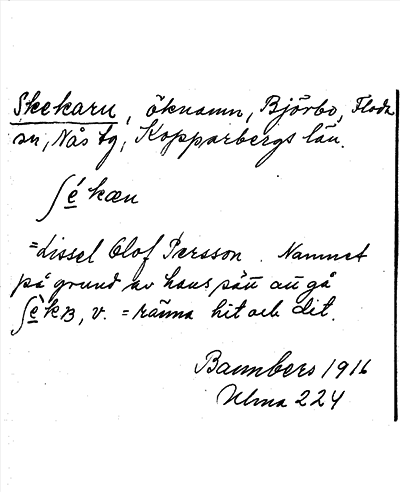 Skekarn, öknamn, Björbo, Floda
sn, Nås tg, Kopparbergs län.
ʃé̱kæn
= Lissel Olof Persson. Namnet
på grund av hans sätt att gå
ʃè̱kɐ, v. = ränna hit och dit.
Bannbers 1916
Ulma 224